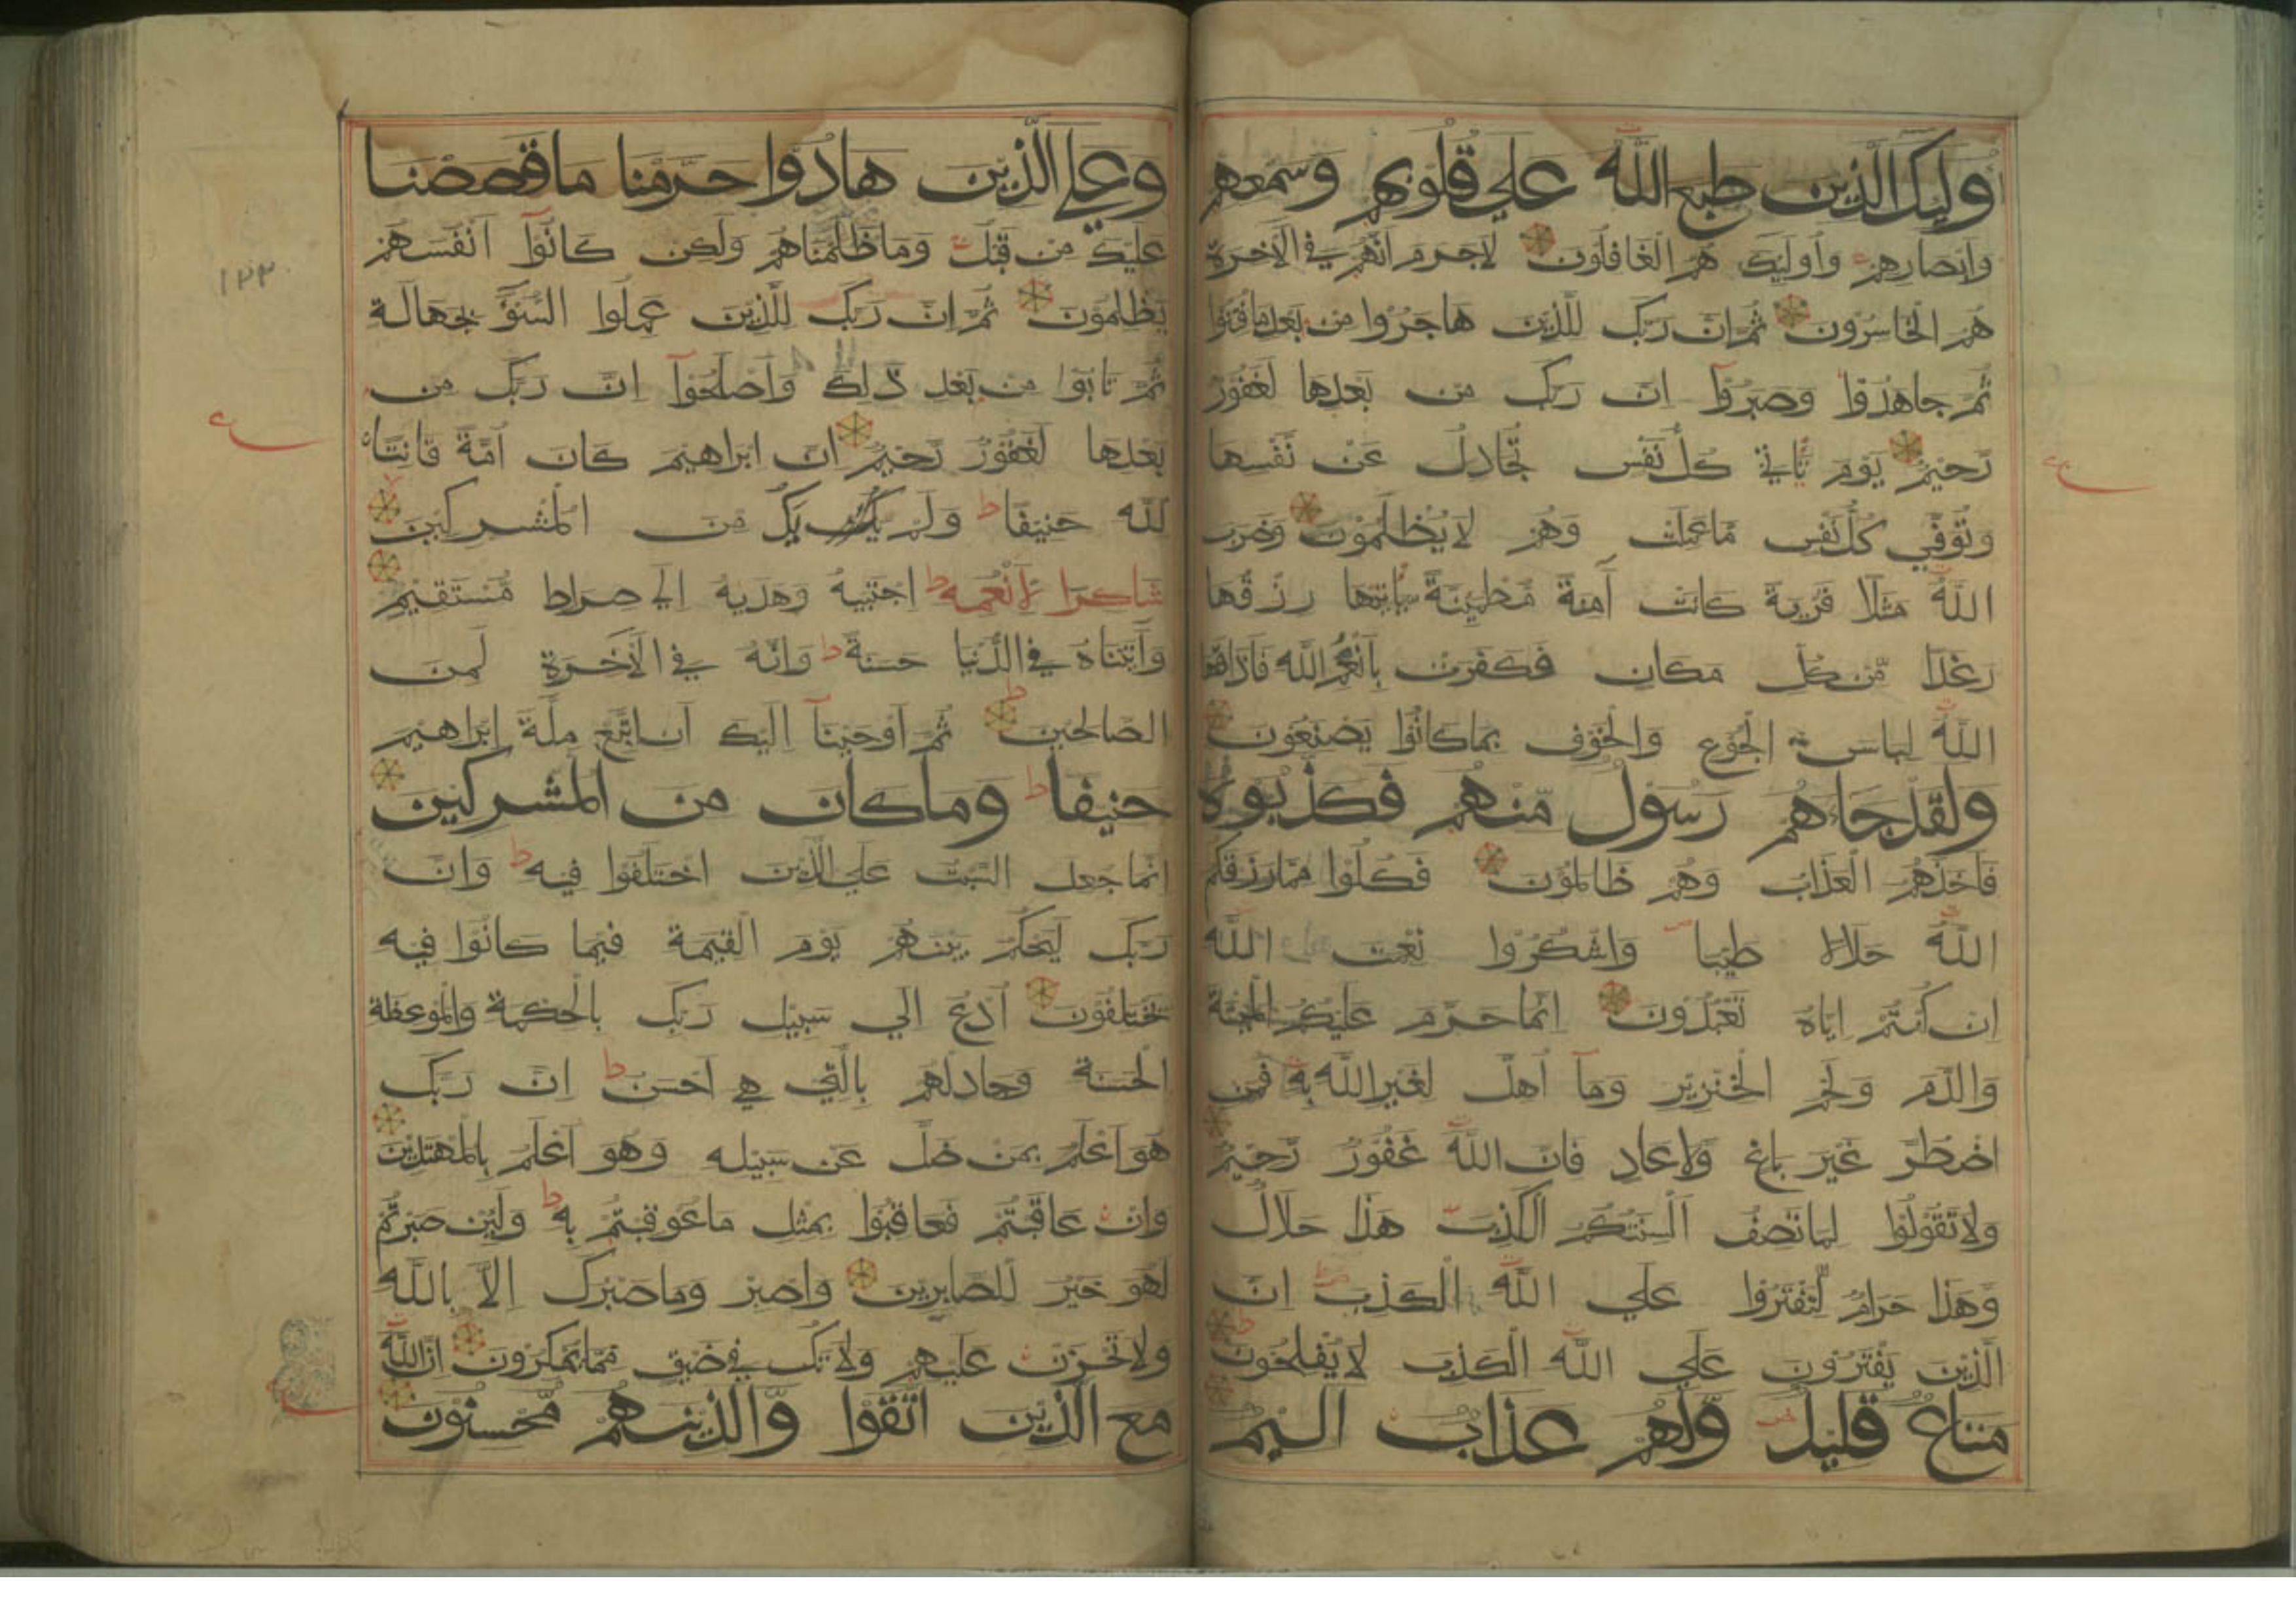 أُولئِكَ الَّذِينَ طَبَعَ اللَّهُ عَلي قُلُوبِهِمْ وَسَمْعِهِمْ
وَابْصَارِهِمْ وَأُولئِكَ هُمُ الْغَافِلُونَ لَاجَرَمَ انَّهُمْ فِي الْاخِرَةِ
هُمُ الْخَاسِرُونَ ثُمَّ انَّ رَبَّكَ لِلَّذِينَ هَاجَرُوا مِنْ بَعْدِ مَا فُتِنُوا
ثُمَّ جَاهَدُوا وَصَبَرُوا انَّ رَبَّكَ مِنْ بَعْدِهَا لَغَفُورٌ
رَّحِيمٌ يَوْمَ تَاتِي كُلُّ نَفْسٍ تُجَادِلُ عَنْ نَفْسِهَا
وَتُوَفَّي كُلُّ نَفْسٍ مَّا عَمِلَتْ وَهُمْ لَا يُظْلَمُونَ وَضَرَبَ
اللَّهُ مَثَلًا قَرْيَةً كَانَتْ آمِنَةً مُطْمَئِنَّةً يَاتِيهَا رِزْقُهَا
رَغَدًا مِّنْ كُلِّ مَكَانٍ فَكَفَرَتْ بِأَنْعُمِ اللَّهِ فَاَذَاقَهَا
اللَّهُ لِبَاسَ الْجُوعِ وَالْخَوْفِ بِمَا كَانُوا يَصْنَعُونَ
وَلَقَدْ جَاءَهُمْ رَسُولٌ مِّنْهُمْ فَكَذَّبُوهُ
فَاَخَذَهُمُ الْعَذَابُ وَهُمْ ظَالِمُونَ فَكُلُوا مِمَّا رَزَقَكُمُ
اللَّهُ حَلَالًا طَيِّبًا وَاشْكُرُوا نِعْمَتَ اللَّهِ
انْ كُنْتُمْ ايَّاهُ تَعْبُدُونَ انَّمَا حَرَّمَ عَلَيْكُمُ الْمَيْتَةَ
وَالدَّمَ وَلَحْمَ الْخِنْزِيرِ وَمَآ اُهِلَّ لِغَيْرِ اللَّهِ بِهِ فَمَنِ
اضْطُرَّ غَيْرَ بَاغٍ وَّلَا عَادٍ فَانَّ اللَّهَ غَفُورٌ رَّحِيمٌ
وَلَا تَقُولُوا لِمَا تَصِفُ اَلْسِنَتُكُمُ الْكَذِبَ هَذَا حَلَالٌ
وَّهَذَا حَرَامٌ لِّتَفْتَرُوا عَلَي اللَّهِ الْكَذِبَ انَّ
الَّذِينَ يَفْتَرُونَ عَلَي اللَّهِ الْكَذِبَ لَا يُفْلِحُونَ
مَتَاعٌ قَلِيلٌ وَّلَهُمْ عَذَابٌ الِيمٌ
وَعَلَي الَّذِينَ هَادُوا حَرَّمْنَا مَا قَصَصْنَا
عَلَيْكَ مِنْ قَبْلُ وَمَا ظَلَمْنَاهُمْ وَلَكِنْ كَانُوآ اَنْفُسَهُمْ
يَظْلِمُونَ ثُمَّ انَّ رَبَّكَ لِلَّذِينَ عَمِلُوا السُّوٓءَ بِجَهَالَةٍ
ثُمَّ تَابُوا مِنْ بَعْدِ ذَلِكَ وَاَصْلَحُوآ انَّ رَبَّكَ مِنْ
بَعْدِهَا لَغَفُورٌ رَّحِيمٌ انَّ ابْرَاهِيمَ كَانَ اُمَّةً قَانِتًا
لِلَّهِ حَنِيفًا ط وَلَمْ يَكُ مِنَ الْمُشْرِكِينَ
شَاكِرًا لِّأَنْعُمِهِ ط اجْتَبَيهُ وَهَدَيهُ الَي صِرَاطٍ مُّسْتَقِيمٍ
وَآتَيْنَاهُ فِي الدُّنْيَا حَسَنَةً ط وَانَّهُ فِي الْاٰخِرَةِ لَمِنَ
الصَّالِحِينَ ط ثُمَّ اَوْحَيْنَآ الَيْكَ اَنِ اتَّبِعْ مِلَّةَ ابْرَاهِيمَ
حَنِيفًا ط وَمَا كَانَ مِنَ الْمُشْرِكِينَ
انَّمَا جُعِلَ السَّبْتُ عَلَي الَّذِينَ اخْتَلَفُوا فِيهِ ط وَانَّ
رَبَّكَ لَيَحْكُمُ بَيْنَهُمْ يَوْمَ الْقِيَمَةِ فِيمَا كَانُوا فِيهِ
يَخْتَلِفُونَ اُدْعُ الَي سَبِيلِ رَبِّكَ بِالْحِكْمَةِ وَالْمَوْعِظَةِ
الْحَسَنَةِ وَجَادِلْهُمْ بِالَّتِي هِيَ اَحْسَنُ ط انَّ رَبَّكَ
هُوَ اَعْلَمُ بِمَنْ ضَلَّ عَنْ سَبِيلِهِ وَهُوَ اَعْلَمُ بِالْمُهْتَدِينَ
وَانْ عَاقَبْتُمْ فَعَاقِبُوا بِمِثْلِ مَا عُوقِبْتُمْ بِهِ ط وَلَئِنْ صَبَرْتُمْ
لَهُوَ خَيْرٌ لِلصَّابِرِينَ وَاصْبِرْ وَمَا صَبْرُكَ الَّا بِاللَّهِ
وَلَا تَحْزَنْ عَلَيْهِمْ وَلَا تَكُ فِي ضَيْقٍ مِّمَّا يَمْكُرُونَ انَّ اللَّهَ
مَعَ الَّذِينَ اتَّقَوْا وَّالَّذِينَ هُمْ مُّحْسِنُونَ
١٢٣